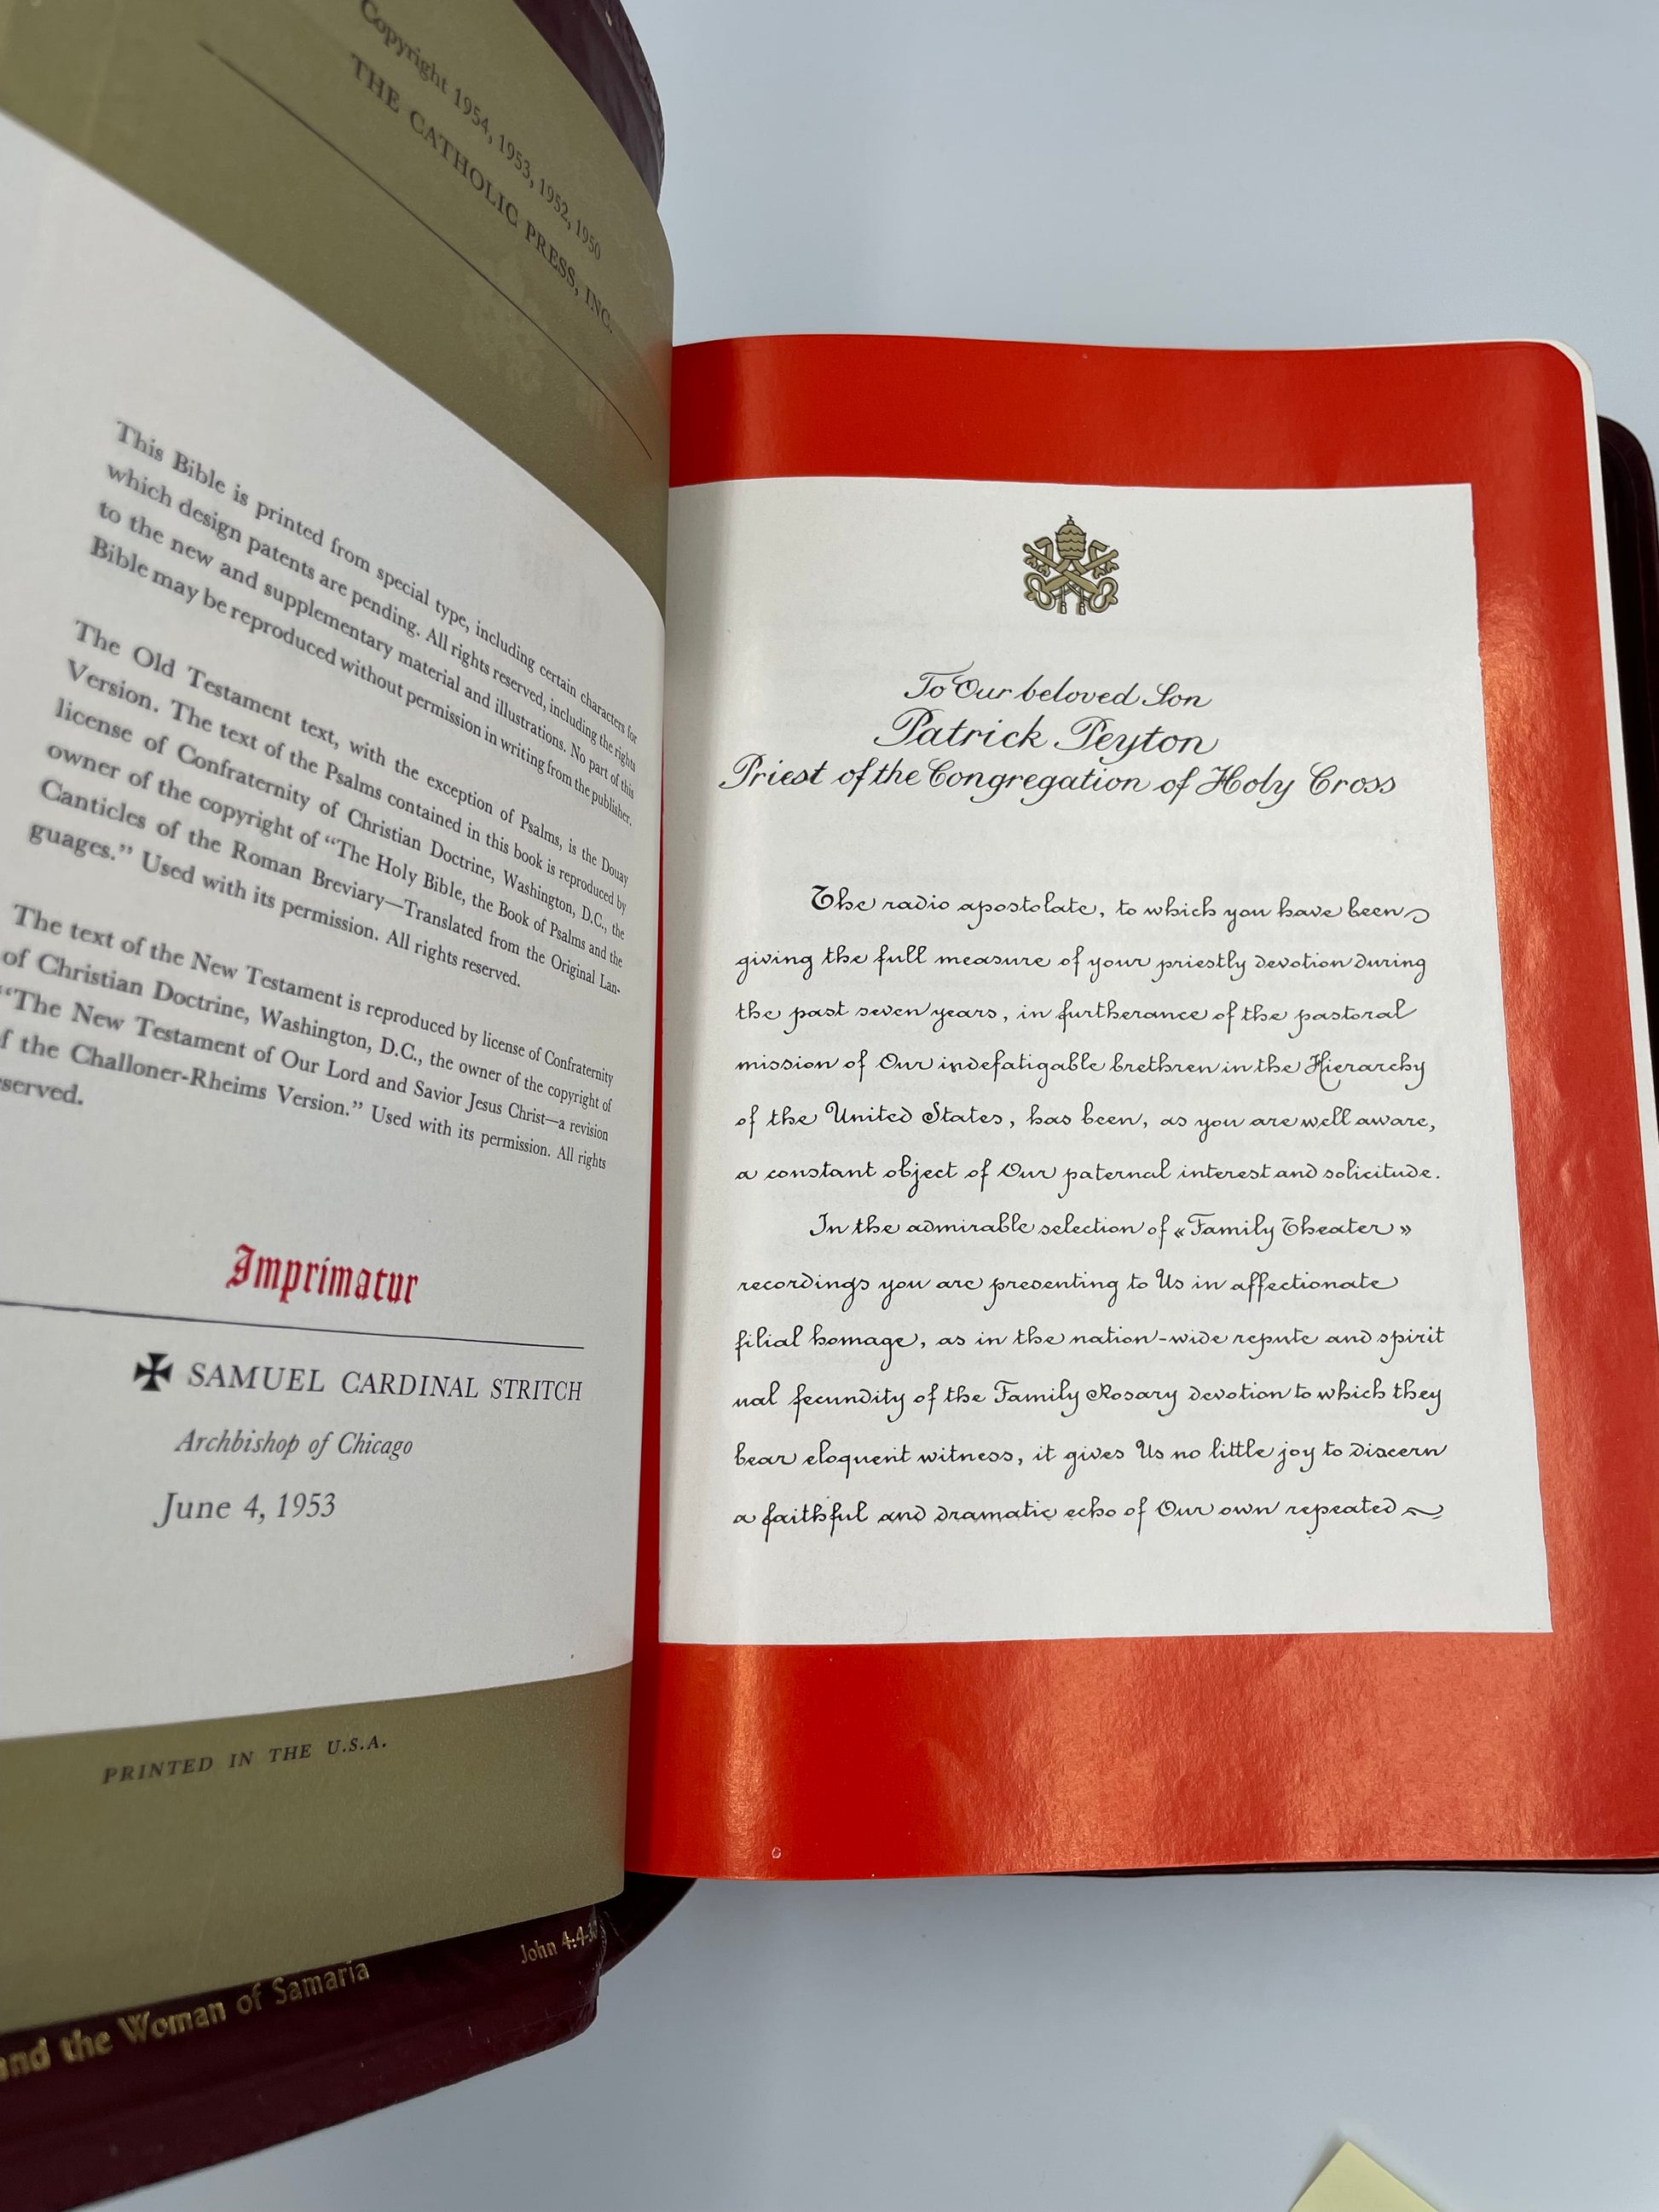 Copyright 1954, 1953, 1952, 1950
THE CATHOLIC PRESS, INC.
This Bible is printed from special type, including certain characters for
which design patents are pending. All rights reserved, including the rights
to the new and supplementary material and illustrations. No part of this
Bible may be reproduced without permission in writing from the publisher.
The Old Testament text, with the exception of Psalms, is the Douay
Version. The text of the Psalms contained in this book is reproduced by
license of Confraternity of Christian Doctrine, Washington, D.C., the
owner of the copyright of “The Holy Bible, the Book of Psalms and the
Canticles of the Roman Breviary—Translated from the Original Lan-
guages.” Used with its permission. All rights reserved.
The text of the New Testament is reproduced by license of Confraternity
of Christian Doctrine, Washington, D.C., the owner of the copyright of
“The New Testament of Our Lord and Savior Jesus Christ—a revision
of the Challoner-Rheims Version.” Used with its permission. All rights
served.
Imprimatur
✠ SAMUEL CARDINAL STRITCH
Archbishop of Chicago
June 4, 1953
PRINTED IN THE U.S.A.
and the Woman of Samaria
John
To Our beloved Son
Patrick Peyton
Priest of the Congregation of Holy Cross
The radio apostolate, to which you have been
giving the full measure of your priestly devotion during
the past seven years, in furtherance of the pastoral
mission of Our indefatigable brethren in the Hierarchy
of the United States, has been, as you are well aware,
a constant object of Our paternal interest and solicitude.
In the admirable selection of «Family Theater»
recordings you are presenting to Us in affectionate
filial homage, as in the nation-wide repute and spirit
ual fecundity of the Family Rosary devotion to which they
bear eloquent witness, it gives Us no little joy to discern
a faithful and dramatic echo of Our own repeated